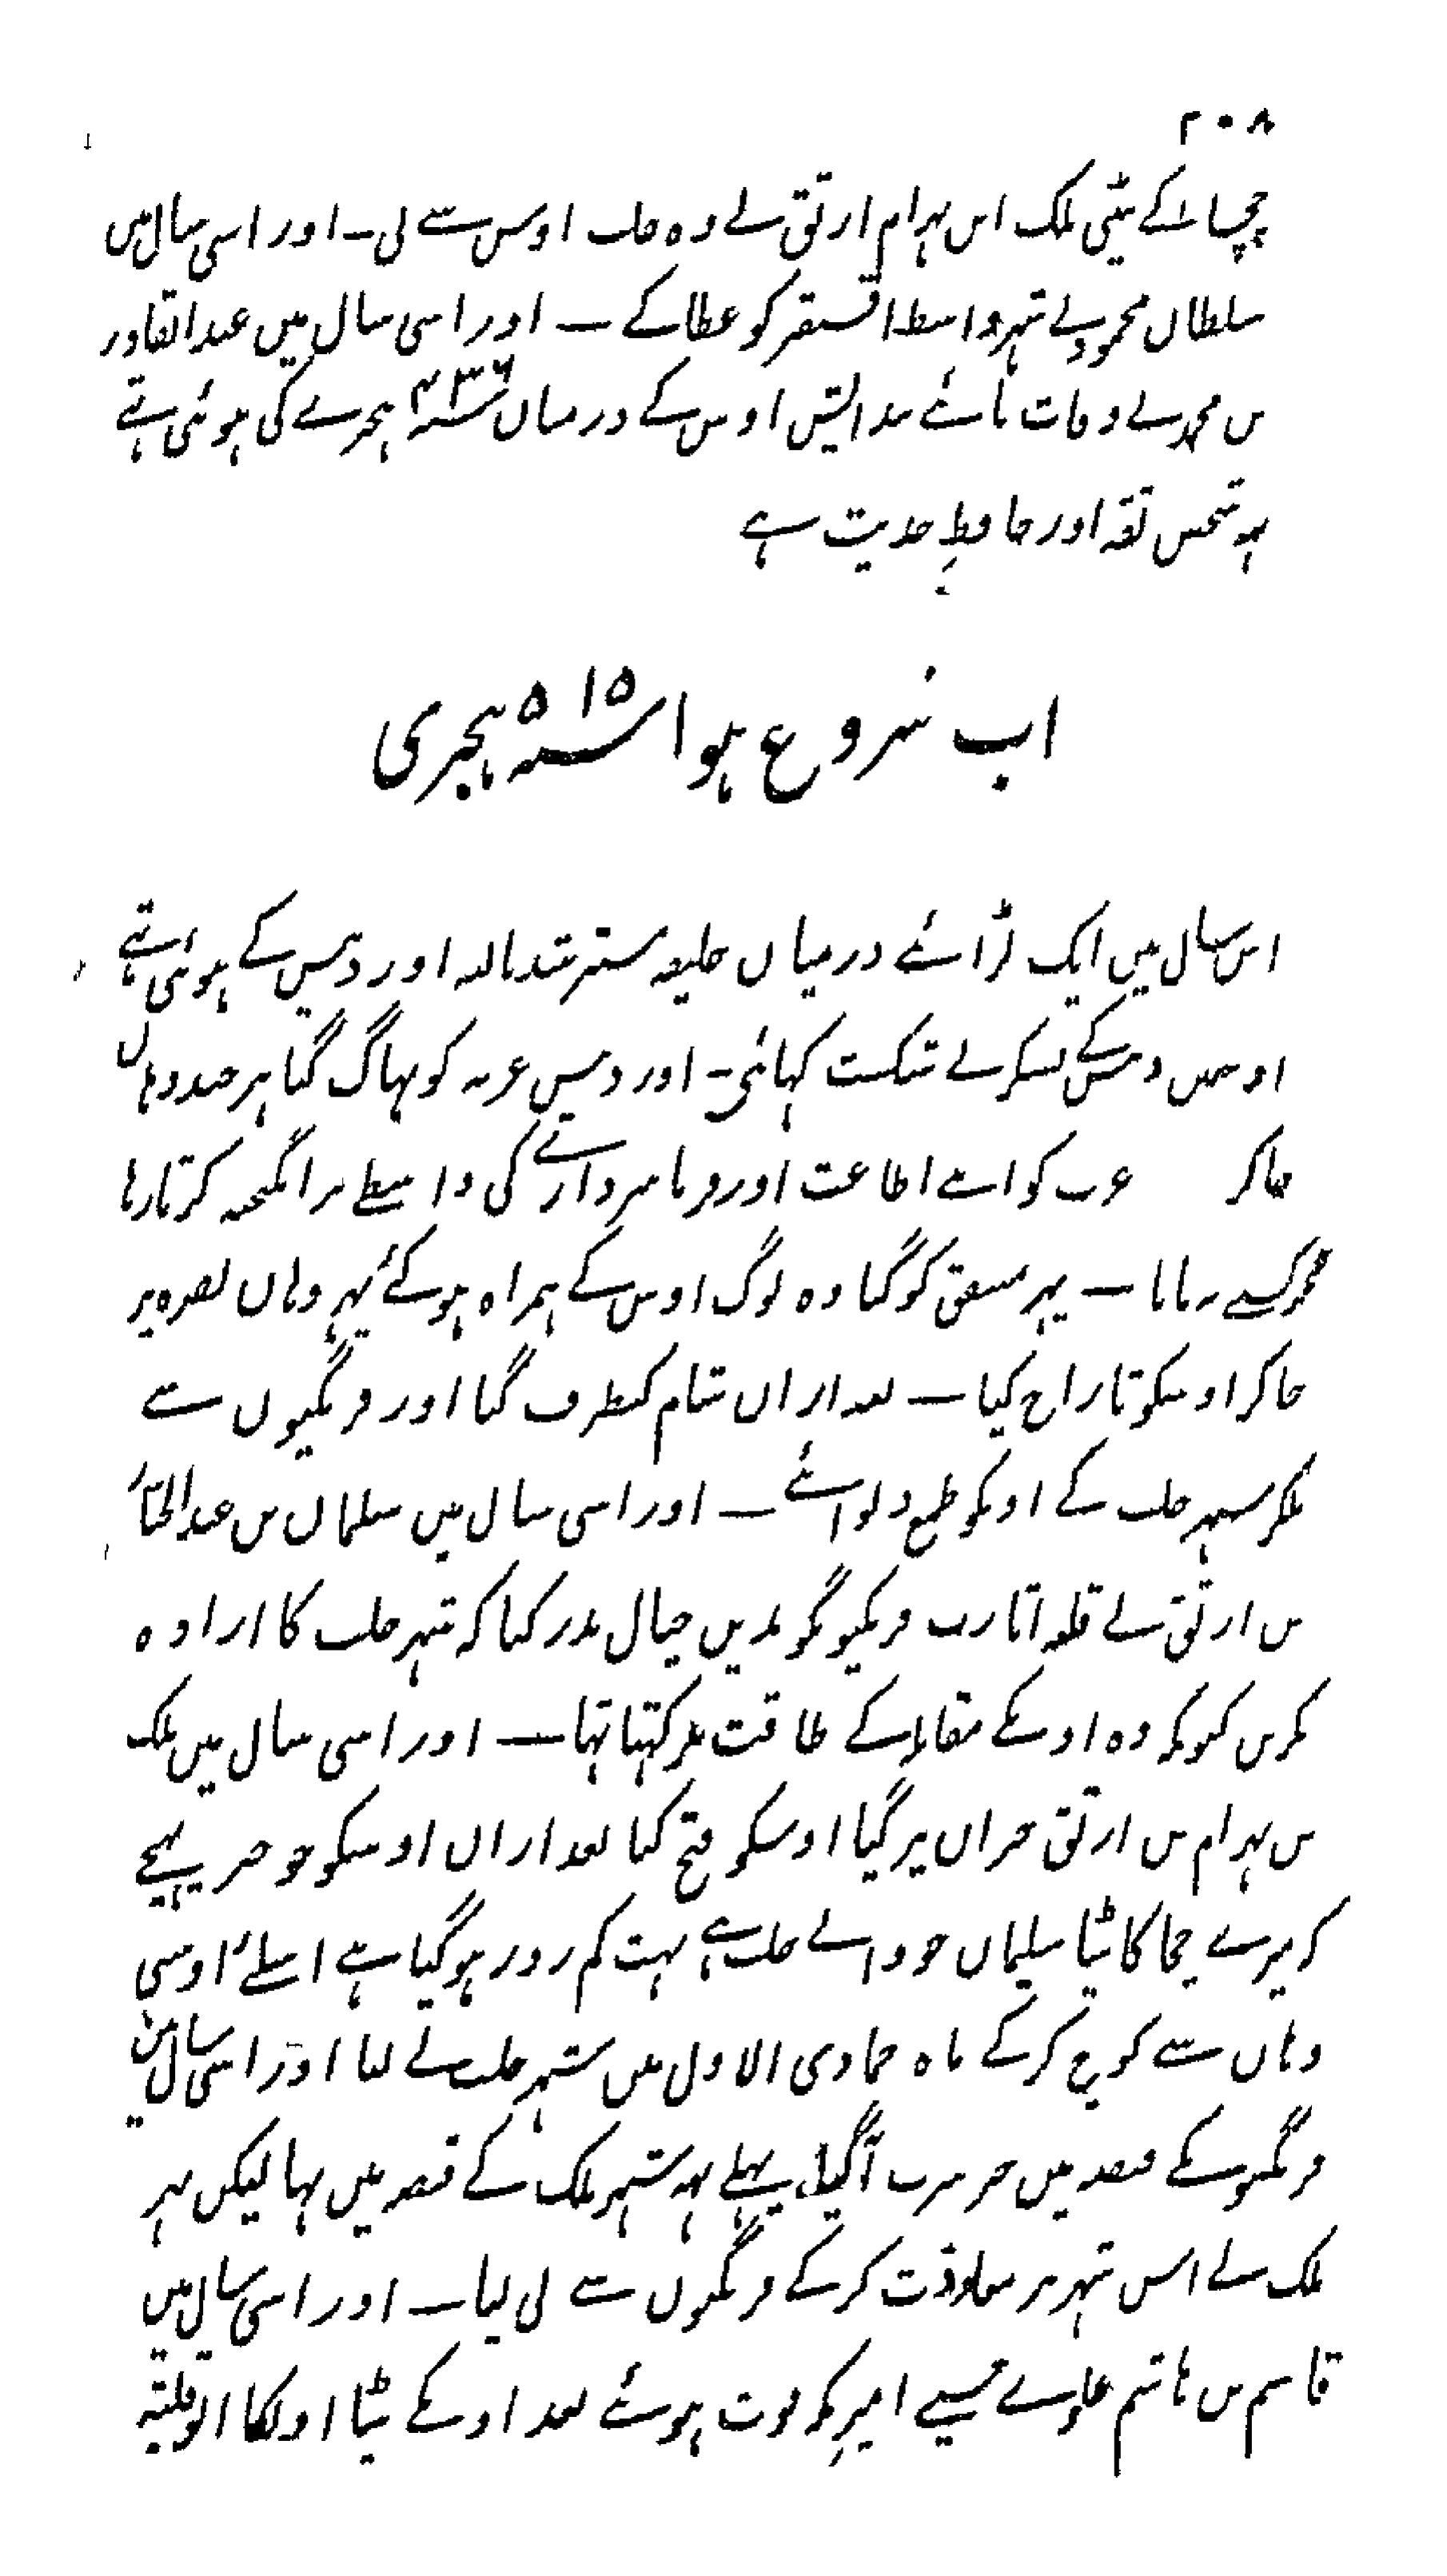 ۲۰۸
چچا کے بیٹی بلک ابن بہرام ارتق نے وہ حلب اوس سے لی ـ اور اسی سال میں
سلطان محمود نے شہر واسط اقسنقر کو عطا کے ـ اور اسی سال میں عبد القادر
بن محمد نے وفات پائے پیدایش اوس کے درمیان ۴۳۶ سنہ ہجرے کی ہوئی تہے
یہہ شخص ثقہ اور حافظِ حدیث ہے
اب شروع ہوا سنہ ۵۱۵ ہجری
اس سال میں ایک لڑائے درمیان خلیفہ مسترشد باللہ اور دبیس کے ہوئی تہے
اوسمیں دبیس کے لشکر نے شکست کہائی ـ اور دبیس غزیہ کو بہاگ گیا ہر چند وہاں
جاکر عرب کو اپنے اطاعت اور فرمانبردارے کی واسطے برانگیختہ کرتا رہا
مگر کسے نے نہ مانا ـ پہر منتفق کو گیا وہ لوگ اوس کے ہمراہ ہوگئے پہر وہاں بصرہ پر
جاکر اوسکو تاراج کیا ـ بعد ازاں شام کیطرف گیا اور فرنگیوں سے
ملکر شہر حلب کے اونکو طمع دلوائے ـ اور اسی سال میں سلیمان بن عبد الجبار
بن ارتق نے قلعہ اثارب فرنگیونکو بدیں خیال نذر کیا کہ شہر حلب کا ارادہ
نکریں کیونکہ وہ اونکے مقابلہ کے طاقت نہ رکہتا تہا ـ اور اسی سال میں بلک
بن بہرام بن ارتق حران پر گیا اوسکو فتح کیا بعد ازاں اوسکو جو خبر پہنچے
کہ میرے چچا کا بیٹا سلیمان جو والے حلب ہے بہت کم زور ہوگیا ہے اسلئے اوسی
وہاں سے کوچ کر کے ماہ جمادی الاول میں شہر حلب لے لیا اور اسی سال میں
فرنگیونکے قبضہ میں خرتبرت آگیا، پہلے یہہ شہر بلک کے قبضہ میں تہا لیکن پہر
بلک نے اس شہر پر معاودت کر کے فرنگیوں سے لی لیا ـ اور اسی سال میں
قاسم بن ہاشم علوے حسینے امیر مکہ فوت ہوئے بعد اونکے بیٹا اونکا ابو فلیتہ